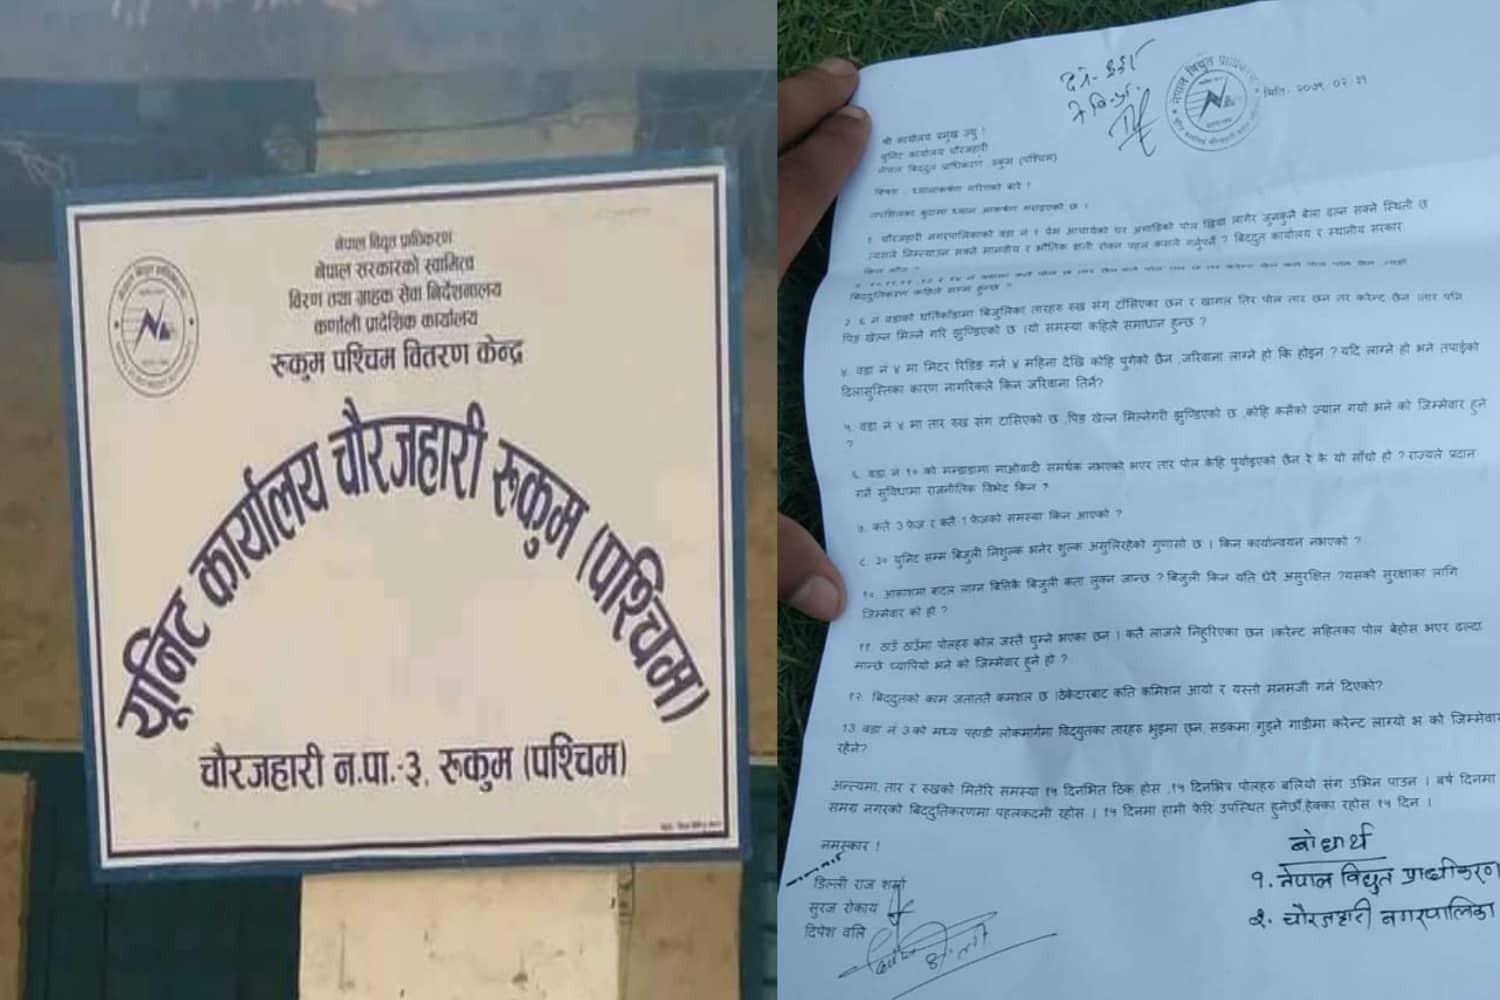 नेपाल विद्युत प्राधिकरण
नेपाल सरकारको स्वामित्व
विरण तथा ग्राहक सेवा निर्देशनालय
कर्णाली प्रादेशिक कार्यालय
रुकुम पश्चिम वितरण केन्द्र
यूनिट कार्यालय चौरजहारी रुकुम (पश्चिम)
चौरजहारी न.पा.-३, रुकुम (पश्चिम)
नेपाल विद्युत प्राधिकरण
मिति. २०७९.०२.३१
श्री कार्यालय प्रमुख ज्यु !
युनिट कार्यालय चौरजहारी
नेपाल बिद्दुत प्राधिकरण रुकुम (पश्चिम)
बिषय . ध्यानाकर्षण गरिएको बारे !
तपशिलका कुरामा ध्यान आकर्षण गराइएको छ ।
१. चौरजहारी नगरपालिकाको वडा नं १ प्रेम आचार्यको घर अगाडिको पोल खिया लागेर जुनकुनै बेला ढल्न सक्ने स्थिती छ
त्यसले निम्त्याउन सक्ने मानवीय र भौतिक क्षती रोक्न पहल कसले गर्नुपर्ने ? बिद्दुत कार्यालय र स्थानीय सरकार
बिद्दुतिकरण कहिले सम्म हुन्छ ?
२. ६ नं वडाको घर्तिकाँडामा बिजुलिका तारहरु रुख संग टाँसिएका छन र खागल तिर पोल तार छन तर करेन्ट छैन ।तार पनि
पिङ खेल्न मिल्ने गरि झुण्डिएको छ ।यो समस्या कहिले समाधान हुन्छ ?
४. वडा नं ४ मा मिटर रिडिङ गर्न ४ महिना देखि कोहि पुगेको छैन ,जरिवाना लाग्ने हो कि होइन ? यदि लाग्ने हो भने तपाईको
ढिलासुस्तिका कारण नागरिकले किन जरिवाना तिर्ने?
५. वडा नं ४ मा तार रुख संग टासिएको छ ,पिङ खेल्न मिल्नेगरी झुण्डिएको छ ,कोहि कसैको ज्यान गयो भने को जिम्मेवार हुने
?
६. वडा नं १० को मन्डाडामा माओवादी समर्थक नभएको भएर तार पोल केहि पुर्याइएको छैन रे के यो साँचो हो ? राज्यले प्रदान
गर्ने सुविधामा राजनीतिक विभेद किन ?
७. कतै 3 फेज र कतै 1 फेजको समस्या किन आएको ?
८. ३० युनिट सम्म बिजुली निशुल्क भनेर शुल्क असुलिरहेको गुणासो छ । किन कार्यान्वयन नभएको ?
१०. आकाशमा बादल लाग्न बित्तिकै बिजुली कता लुक्न जान्छ ? बिजुली किन यति धेरै असुरक्षित ?यसको सुरक्षाका लागि
जिम्मेवार को हो ?
११. ठाउँ ठाउँमा पोलहरु कोल जस्तै घुम्ने भएका छन । कतै लाजले निहुरिएका छन ।करेन्ट सहितका पोल बेहोस भएर ढल्दा
मान्छे च्यापियो भने को जिम्मेवार हुने हो ?
१२. बिद्दुतको काम जताततै कमशल छ ।ठेकेदारबाट कति कमिशन आयो र यस्तो मनमर्जी गर्न दिएको?
13 वडा नं 3 को मध्य पहाडी लोकमार्गमा विद्युतका तारहरु भुइमा छन, सडकमा गुड्ने गाडीमा करेन्ट लाग्यो भ को जिम्मेवार
रहेने?
अन्त्यमा, तार र रुखको मितेरि समस्या १५ दिनभित ठिक होस ,१५ दिनभित्र पोलहरु बलियो संग उभिन पाउन । बर्ष दिनमा
समग्र नगरको बिद्दुतिकरणमा पहलकदमी रहोस । १५ दिनमा हामी फेरि उपस्थित हुनेछौँ,हेक्का रहोस १५ दिन ।
नमस्कार !
डिल्ली राज शर्मा
सुरज रोकाय
दिपेश वलि
बोधार्थ
१. नेपाल विद्युत प्राधीकरण
२. चौरजहारी नगरपालिका